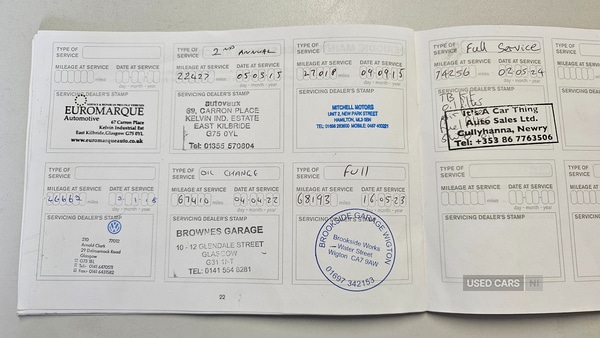 TYPE OF SERVICE
MILEAGE AT SERVICE DATE AT SERVICE
miles day - month - year
SERVICING DEALER'S STAMP
EUROMARQUE
Automotive
67 Carron Place
Kelvin Industrial Est
East Kilbride, Glasgow G75 0YL
www.euromarqueauto.co.uk
TYPE OF SERVICE 2ND ANNUAL
MILEAGE AT SERVICE DATE AT SERVICE
22427 miles 05 03 15
day - month - year
SERVICING DEALER'S STAMP
autovaux
89, CARRON PLACE
KELVIN IND. ESTATE
EAST KILBRIDE
G75 0YL
Tel: 01355 570804
TYPE OF SERVICE
MILEAGE AT SERVICE DATE AT SERVICE
27018 miles 09 09 15
day - month - year
SERVICING DEALER'S STAMP
MITCHELL MOTORS
UNIT 2, NEW PARK STREET
HAMILTON, ML3 0BN
TYPE OF SERVICE Full Service
MILEAGE AT SERVICE DATE AT SERVICE
74256 miles 02 05 24
day - month - year
It's A Car Thing
Auto Sales Ltd.
Cullyhanna, Newry
Tel: +353 86 7763506
TYPE OF SERVICE
MILEAGE AT SERVICE
miles
SERVICING
TYPE OF SERVICE
MILEAGE AT SERVICE DATE AT SERVICE
miles day - month - year
SERVICING DEALER'S STAMP
210 77002
Arnold Clark
Glasgow
TYPE OF SERVICE OIL CHANGE
MILEAGE AT SERVICE DATE AT SERVICE
67410 miles 04 04 22
day - month - year
SERVICING DEALER'S STAMP
BROWNES GARAGE
10 - 12 GLENDALE STREET
GLASGOW
TEL: 0141 554 8281
TYPE OF SERVICE Full
MILEAGE AT SERVICE DATE AT SERVICE
68193 miles 16 05 23
day - month - year
SERVICING DEALER'S STAMP
BROOKSIDE GARAGE WIGTON
Brookside Works
Water Street
Wigton CA7 9AW
01697 342153
TYPE OF SERVICE
MILEAGE AT SERVICE DATE AT SERVICE
miles day - month - year
SERVICING DEALER'S STAMP
TYPE OF SERVICE
MILEAGE AT
SERVICING
22
USED CARS NI